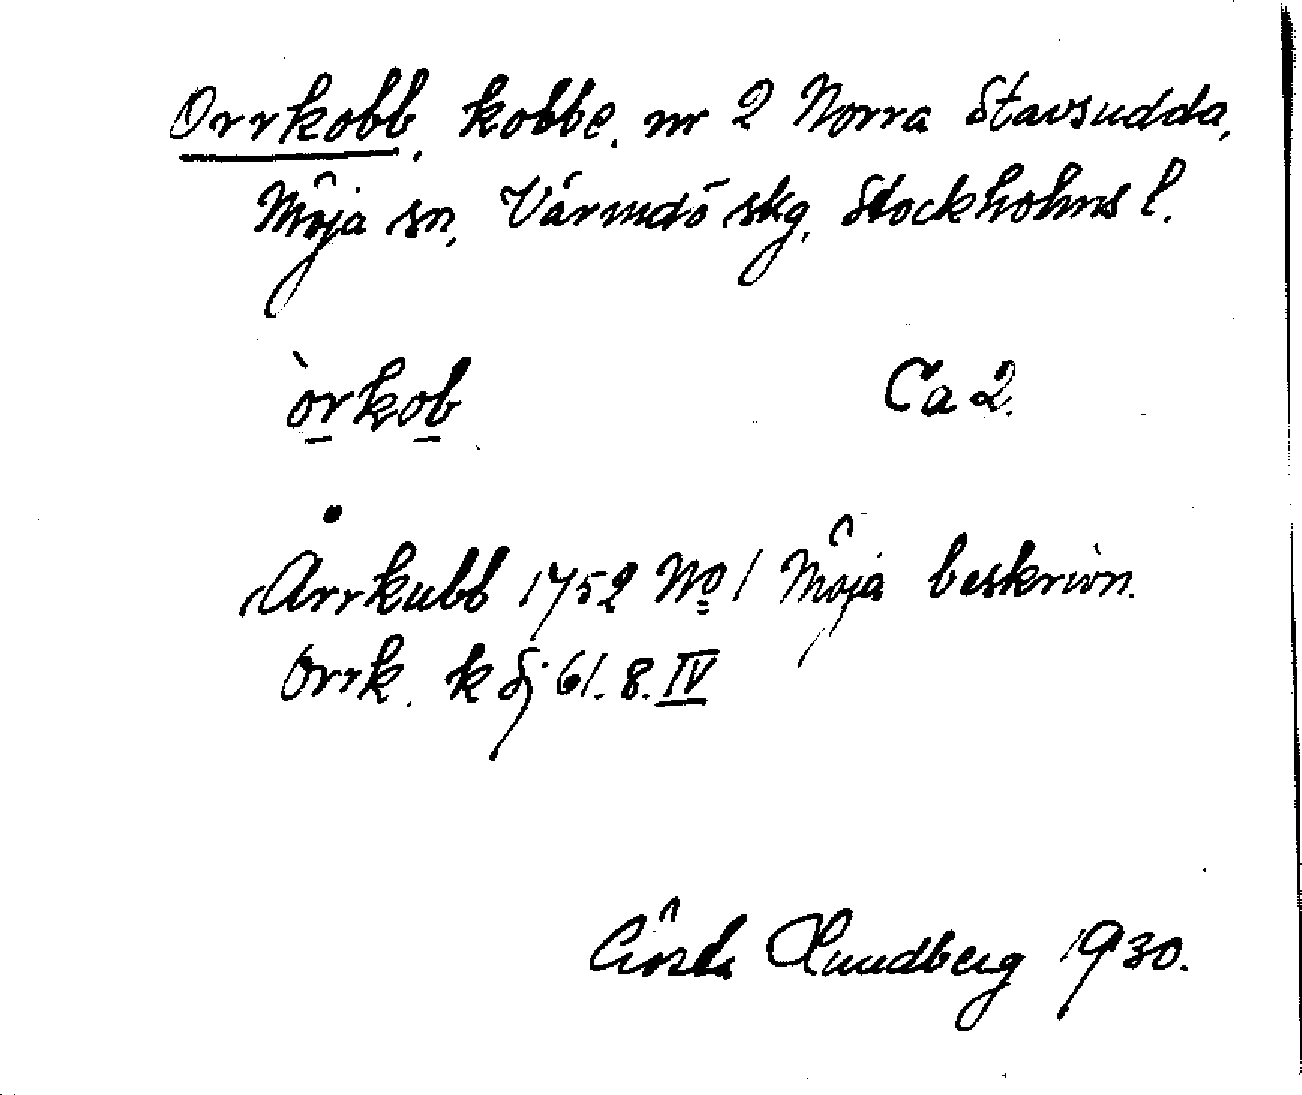 Orrkobb, kobbe, nr 2 Norra Stavsudda,
Möja sn, Värmdö skg, Stockholms l.
`orkob Ca 2.
Årrkubb 1752 No 1 Möja beskrivn.
Orrk. k Sj 61. 8. IV
Gösta Lundberg 1930.